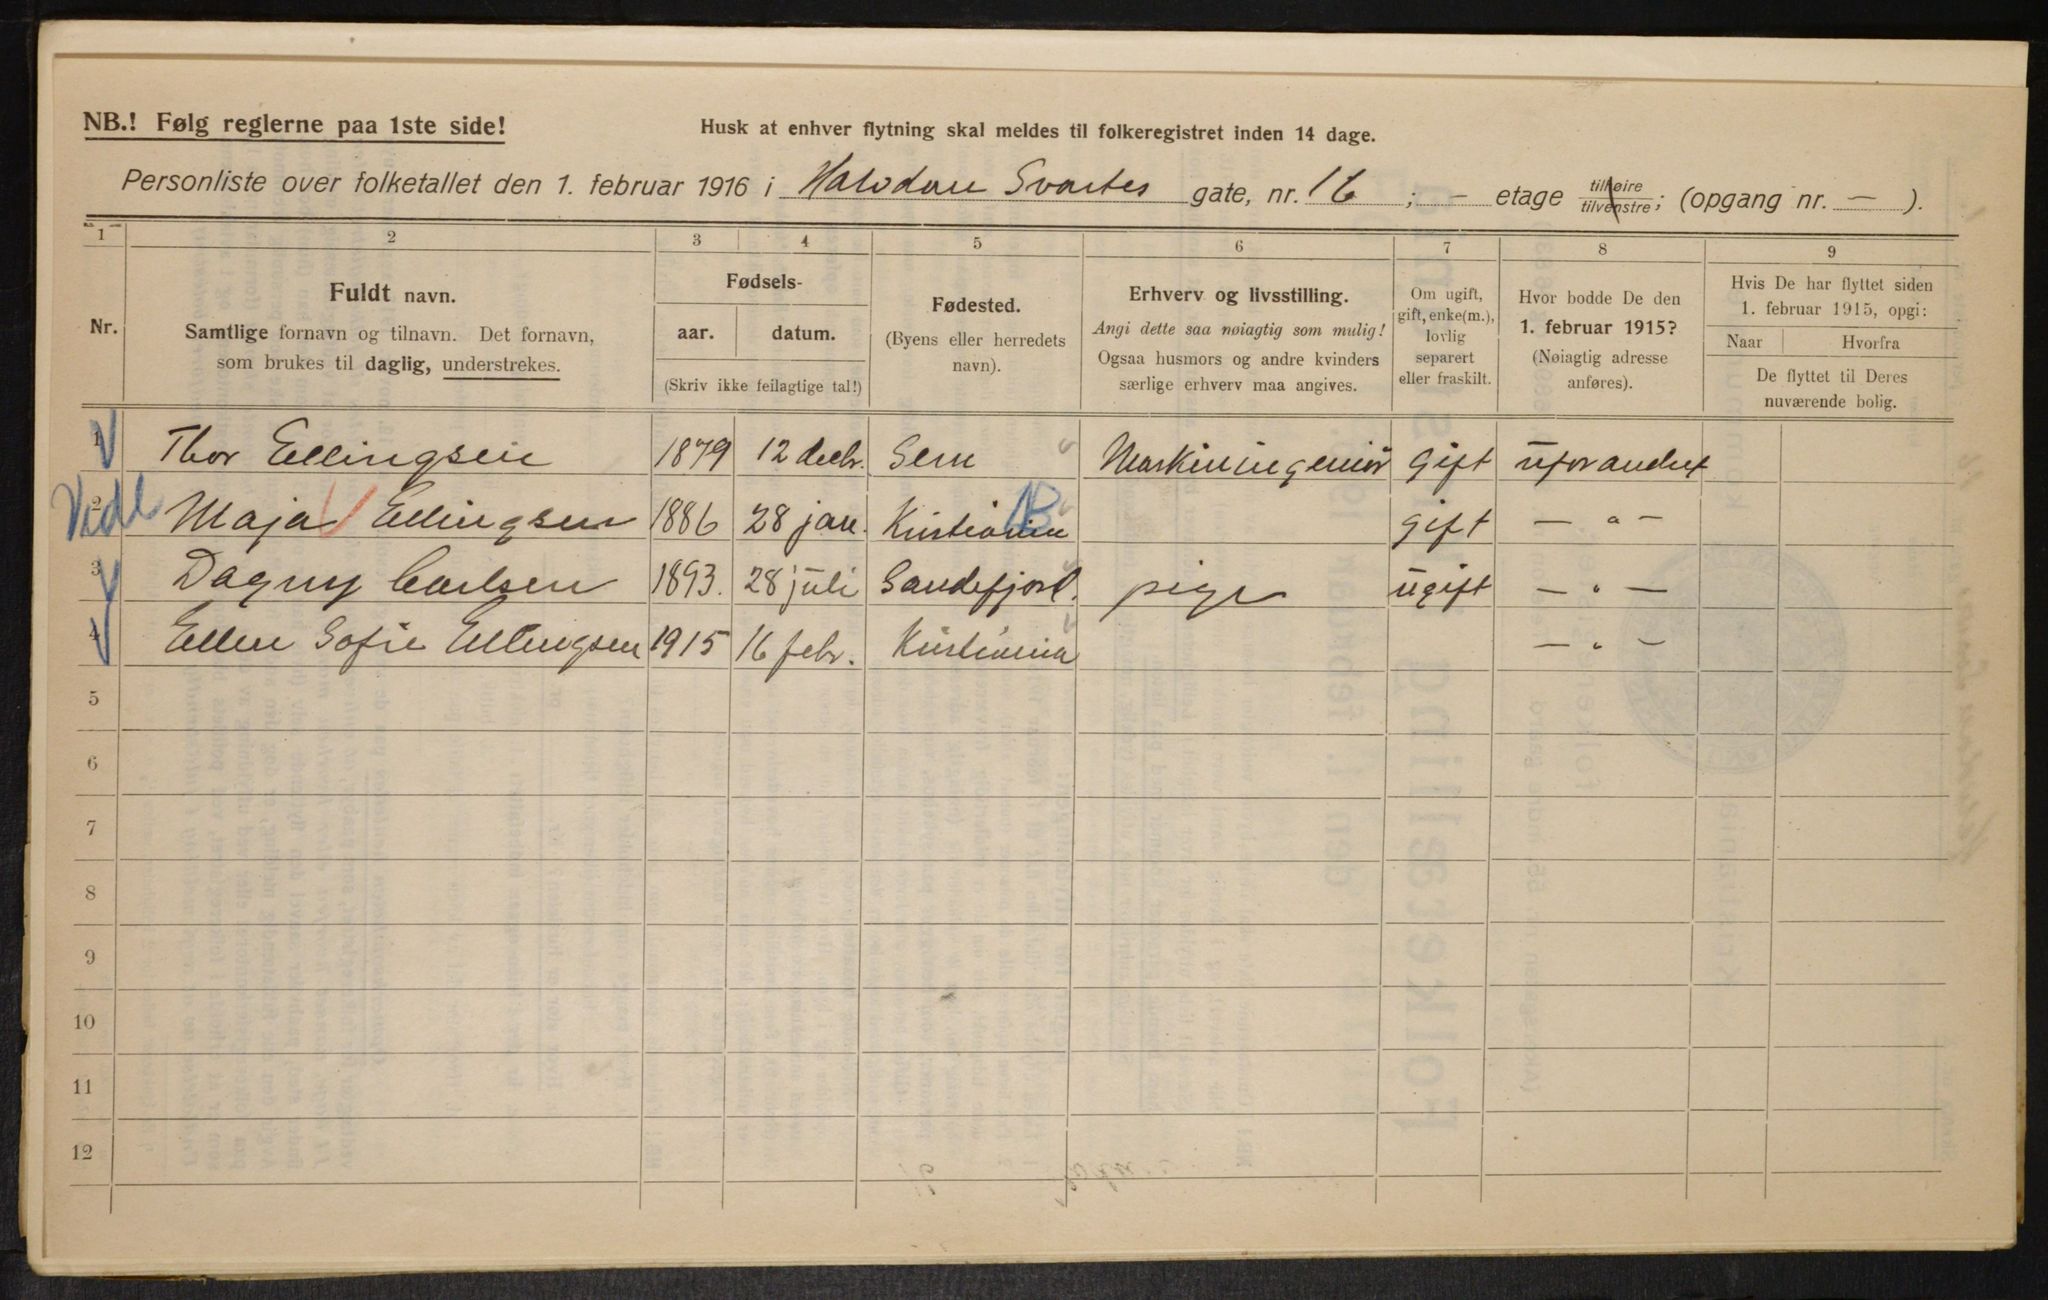 NB.! Følg reglerne paa 1ste side!
Husk at enhver flytning skal meldes til folkeregistret inden 14 dage.
Personliste over folketallet den 1. februar 1916 i Halvdan Svartes gate, nr. 16 ; – etage tilhøire tilvenstre; (opgang nr. — ).
1 2 3 4 5 6 7 8 9
Nr.
Fuldt navn.
Samtlige fornavn og tilnavn. Det fornavn,
som brukes til daglig, understrekes.
Fødsels-
aar. datum.
(Skriv ikke feilagtige tal!)
Fødested.
(Byens eller herredets
navn).
Erhverv og livsstilling.
Angi dette saa nøiagtig som mulig!
Ogsaa husmors og andre kvinders
særlige erhverv maa angives.
Om ugift,
gift, enke(m.),
lovlig
separert
eller fraskilt.
Hvor bodde De den
1. februar 1915?
(Nøiagtig adresse
anføres).
Hvis De har flyttet siden
1. februar 1915, opgi:
Naar Hvorfra
De flyttet til Deres
nuværende bolig.
1 Thor Ellingsen 1879 12 decbr. Sem Maskiningeniør gift uforandret
2 Maja Ellingsen 1886 28 jan. Kristiania gift — " —
3 Dagny Carlsen 1893. 28 juli Sandefjord. pige ugift — " —
4 Ellen Sofie Ellingsen 1915 16 febr. Kristiania — " —
5
6
7
8
9
10
11
12